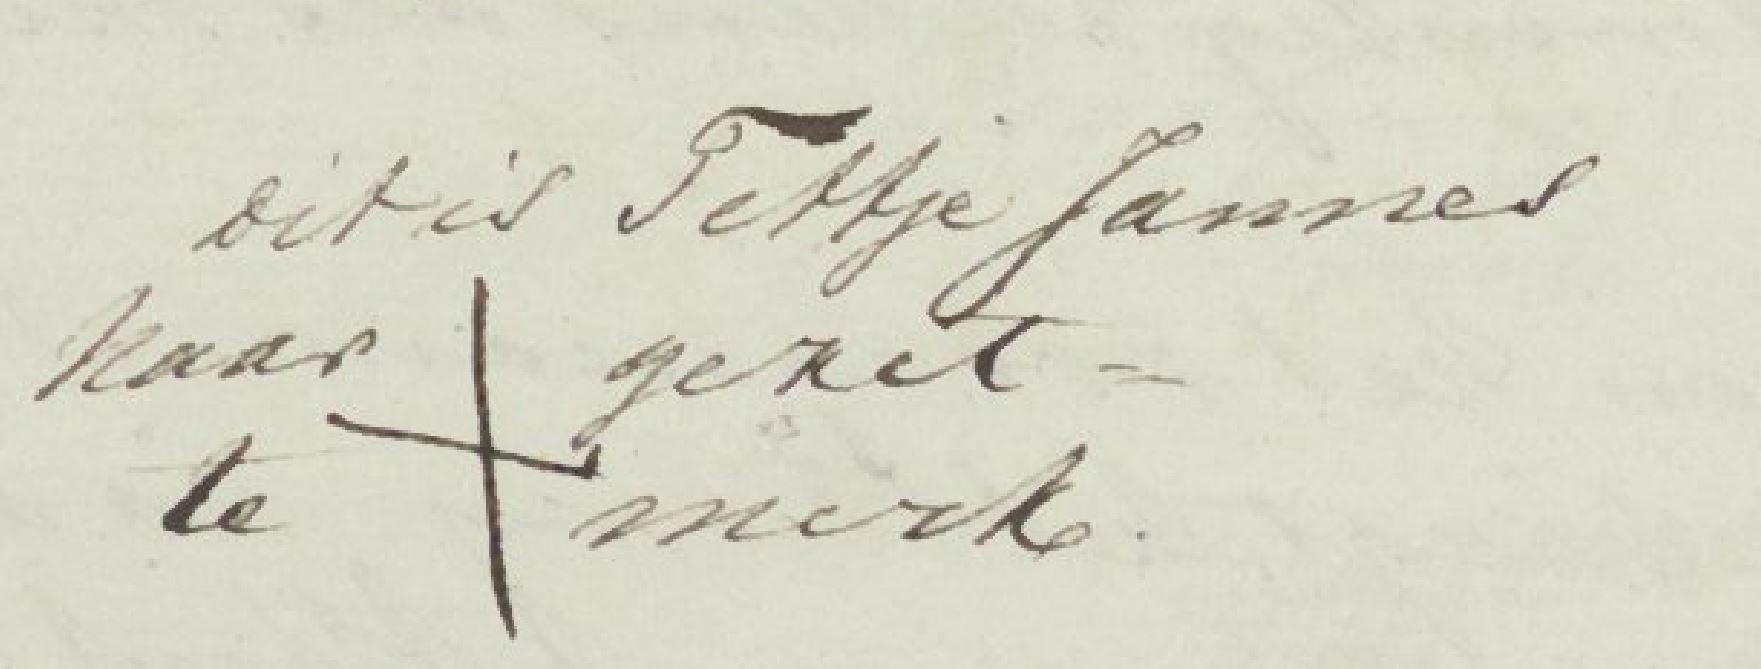 dit is Tettje Jannes
haar gezet =
te merk.